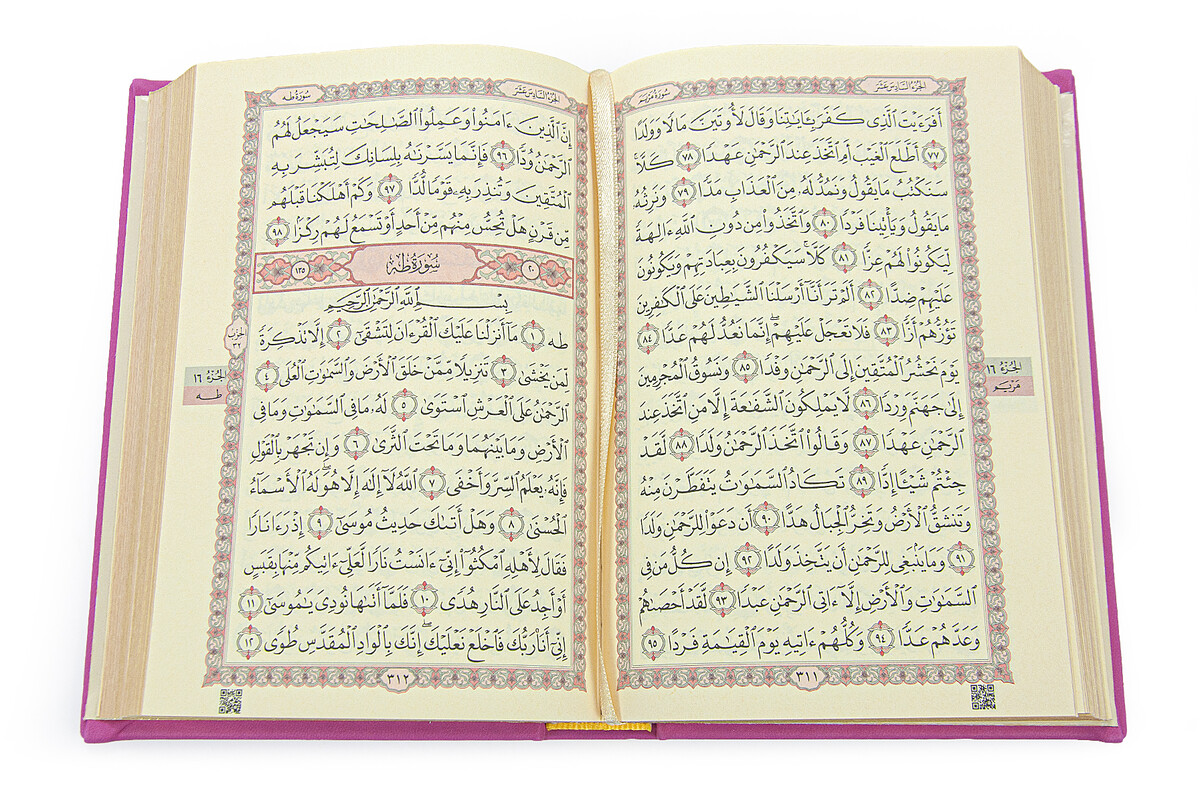 الجزء السادس عشر
سورة مريم
أَفَرَءَيْتَ ٱلَّذِى كَفَرَ بِـَٔايَٰتِنَا وَقَالَ لَأُوتَيَنَّ مَالًا وَوَلَدًا
٧٧ أَطَّلَعَ ٱلْغَيْبَ أَمِ ٱتَّخَذَ عِندَ ٱلرَّحْمَٰنِ عَهْدًا ٧٨ كَلَّا
سَنَكْتُبُ مَا يَقُولُ وَنَمُدُّ لَهُۥ مِنَ ٱلْعَذَابِ مَدًّا ٧٩ وَنَرِثُهُۥ
مَا يَقُولُ وَيَأْتِينَا فَرْدًا ٨٠ وَٱتَّخَذُوا۟ مِن دُونِ ٱللَّهِ ءَالِهَةً
لِّيَكُونُوا۟ لَهُمْ عِزًّا ٨١ كَلَّا ۚ سَيَكْفُرُونَ بِعِبَادَتِهِمْ وَيَكُونُونَ
عَلَيْهِمْ ضِدًّا ٨٢ أَلَمْ تَرَ أَنَّآ أَرْسَلْنَا ٱلشَّيَٰطِينَ عَلَى ٱلْكَٰفِرِينَ
تَؤُزُّهُمْ أَزًّا ٨٣ فَلَا تَعْجَلْ عَلَيْهِمْ ۖ إِنَّمَا نَعُدُّ لَهُمْ عَدًّا ٨٤
يَوْمَ نَحْشُرُ ٱلْمُتَّقِينَ إِلَى ٱلرَّحْمَٰنِ وَفْدًا ٨٥ وَنَسُوقُ ٱلْمُجْرِمِينَ
إِلَىٰ جَهَنَّمَ وِرْدًا ٨٦ لَّا يَمْلِكُونَ ٱلشَّفَٰعَةَ إِلَّا مَنِ ٱتَّخَذَ عِندَ
ٱلرَّحْمَٰنِ عَهْدًا ٨٧ وَقَالُوا۟ ٱتَّخَذَ ٱلرَّحْمَٰنُ وَلَدًا ٨٨ لَّقَدْ
جِئْتُمْ شَيْـًٔا إِدًّا ٨٩ تَكَادُ ٱلسَّمَٰوَٰتُ يَتَفَطَّرْنَ مِنْهُ
وَتَنشَقُّ ٱلْأَرْضُ وَتَخِرُّ ٱلْجِبَالُ هَدًّا ٩٠ أَن دَعَوْا۟ لِلرَّحْمَٰنِ وَلَدًا
٩١ وَمَا يَنۢبَغِى لِلرَّحْمَٰنِ أَن يَتَّخِذَ وَلَدًا ٩٢ إِن كُلُّ مَن فِى
ٱلسَّمَٰوَٰتِ وَٱلْأَرْضِ إِلَّآ ءَاتِى ٱلرَّحْمَٰنِ عَبْدًا ٩٣ لَّقَدْ أَحْصَىٰهُمْ
وَعَدَّهُمْ عَدًّا ٩٤ وَكُلُّهُمْ ءَاتِيهِ يَوْمَ ٱلْقِيَٰمَةِ فَرْدًا ٩٥
٣١١
الجزء ١٦
مريم
الجزء السادس عشر
سورة طه
إِنَّ ٱلَّذِينَ ءَامَنُوا۟ وَعَمِلُوا۟ ٱلصَّٰلِحَٰتِ سَيَجْعَلُ لَهُمُ
ٱلرَّحْمَٰنُ وُدًّا ٩٦ فَإِنَّمَا يَسَّرْنَٰهُ بِلِسَانِكَ لِتُبَشِّرَ بِهِ
ٱلْمُتَّقِينَ وَتُنذِرَ بِهِۦ قَوْمًا لُّدًّا ٩٧ وَكَمْ أَهْلَكْنَا قَبْلَهُم
مِّن قَرْنٍ هَلْ تُحِسُّ مِنْهُم مِّنْ أَحَدٍ أَوْ تَسْمَعُ لَهُمْ رِكْزًۢا ٩٨
٢٠ سُورَةُ طه ١٣٥
بِسْمِ ٱللَّهِ ٱلرَّحْمَٰنِ ٱلرَّحِيمِ
طه ١ مَآ أَنزَلْنَا عَلَيْكَ ٱلْقُرْءَانَ لِتَشْقَىٰٓ ٢ إِلَّا تَذْكِرَةً
لِّمَن يَخْشَىٰ ٣ تَنزِيلًا مِّمَّنْ خَلَقَ ٱلْأَرْضَ وَٱلسَّمَٰوَٰتِ ٱلْعُلَى ٤
ٱلرَّحْمَٰنُ عَلَى ٱلْعَرْشِ ٱسْتَوَىٰ ٥ لَهُۥ مَا فِى ٱلسَّمَٰوَٰتِ وَمَا فِى
ٱلْأَرْضِ وَمَا بَيْنَهُمَا وَمَا تَحْتَ ٱلثَّرَىٰ ٦ وَإِن تَجْهَرْ بِٱلْقَوْلِ
فَإِنَّهُۥ يَعْلَمُ ٱلسِّرَّ وَأَخْفَى ٧ ٱللَّهُ لَآ إِلَٰهَ إِلَّا هُوَ ۖ لَهُ ٱلْأَسْمَآءُ
ٱلْحُسْنَىٰ ٨ وَهَلْ أَتَىٰكَ حَدِيثُ مُوسَىٰٓ ٩ إِذْ رَءَا نَارًا
فَقَالَ لِأَهْلِهِ ٱمْكُثُوٓا۟ إِنِّىٓ ءَانَسْتُ نَارًا لَّعَلِّىٓ ءَاتِيكُم مِّنْهَا بِقَبَسٍ
أَوْ أَجِدُ عَلَى ٱلنَّارِ هُدًى ١٠ فَلَمَّآ أَتَىٰهَا نُودِىَ يَٰمُوسَىٰٓ ١١
إِنِّىٓ أَنَا۠ رَبُّكَ فَٱخْلَعْ نَعْلَيْكَ ۖ إِنَّكَ بِٱلْوَادِ ٱلْمُقَدَّسِ طُوًى ١٢
٣١٢
الحزب
٣٢
الجزء ١٦
طه